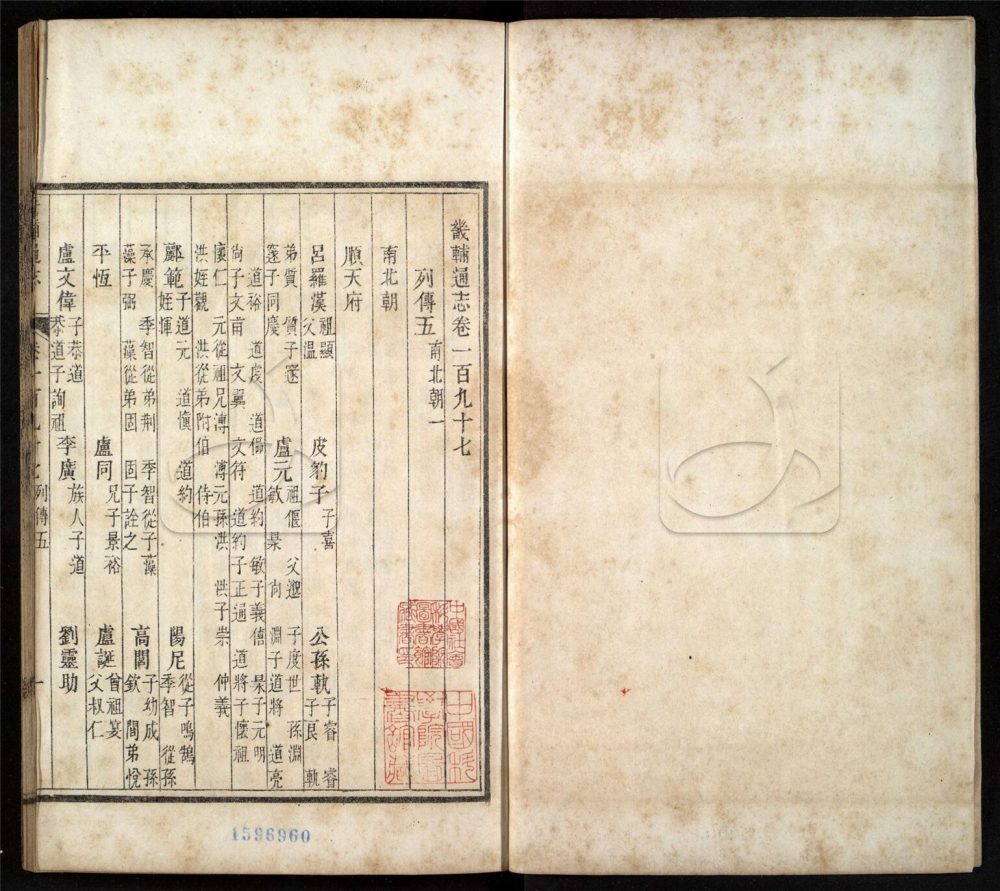 畿輔通志卷一百九十七
列傳五 南北朝一
南北朝
順天府
呂羅漢 祖顯 父溫 皮豹子 子喜 公孫軌 子睿 睿子良 軌
弟質 質子邃 盧元 祖偃 父邈 子度世 孫淵
邃子同慶 敏 昶 尚 淵子道將 道亮
道裕 道虔 道偘 道約 敏子義僖 昶子元明
尚子文甫 文翼 文符 道約子正通 道將子懷祖
懷仁 元從祖兄溥 溥元孫洪 洪子崇 仲義
洪姪觀 洪從弟附伯 侍伯
酈範 子道元 道慎 道約 姪惲 陽尼 從子鳴鵠 季智 從孫
承慶 季智從弟荆 季智從子藻
藻子弼 藻從弟固 固子詮之 高閭 子幼成 孫欽 閭弟悅
平恆 盧同 兄子景裕 盧誕 曾祖宴 父叔仁
盧文偉 子恭道 恭道子詢祖 李廣 族人子道 劉靈助
卷一百九十七 列傳五 一
中國科學院圖書館藏
1596960